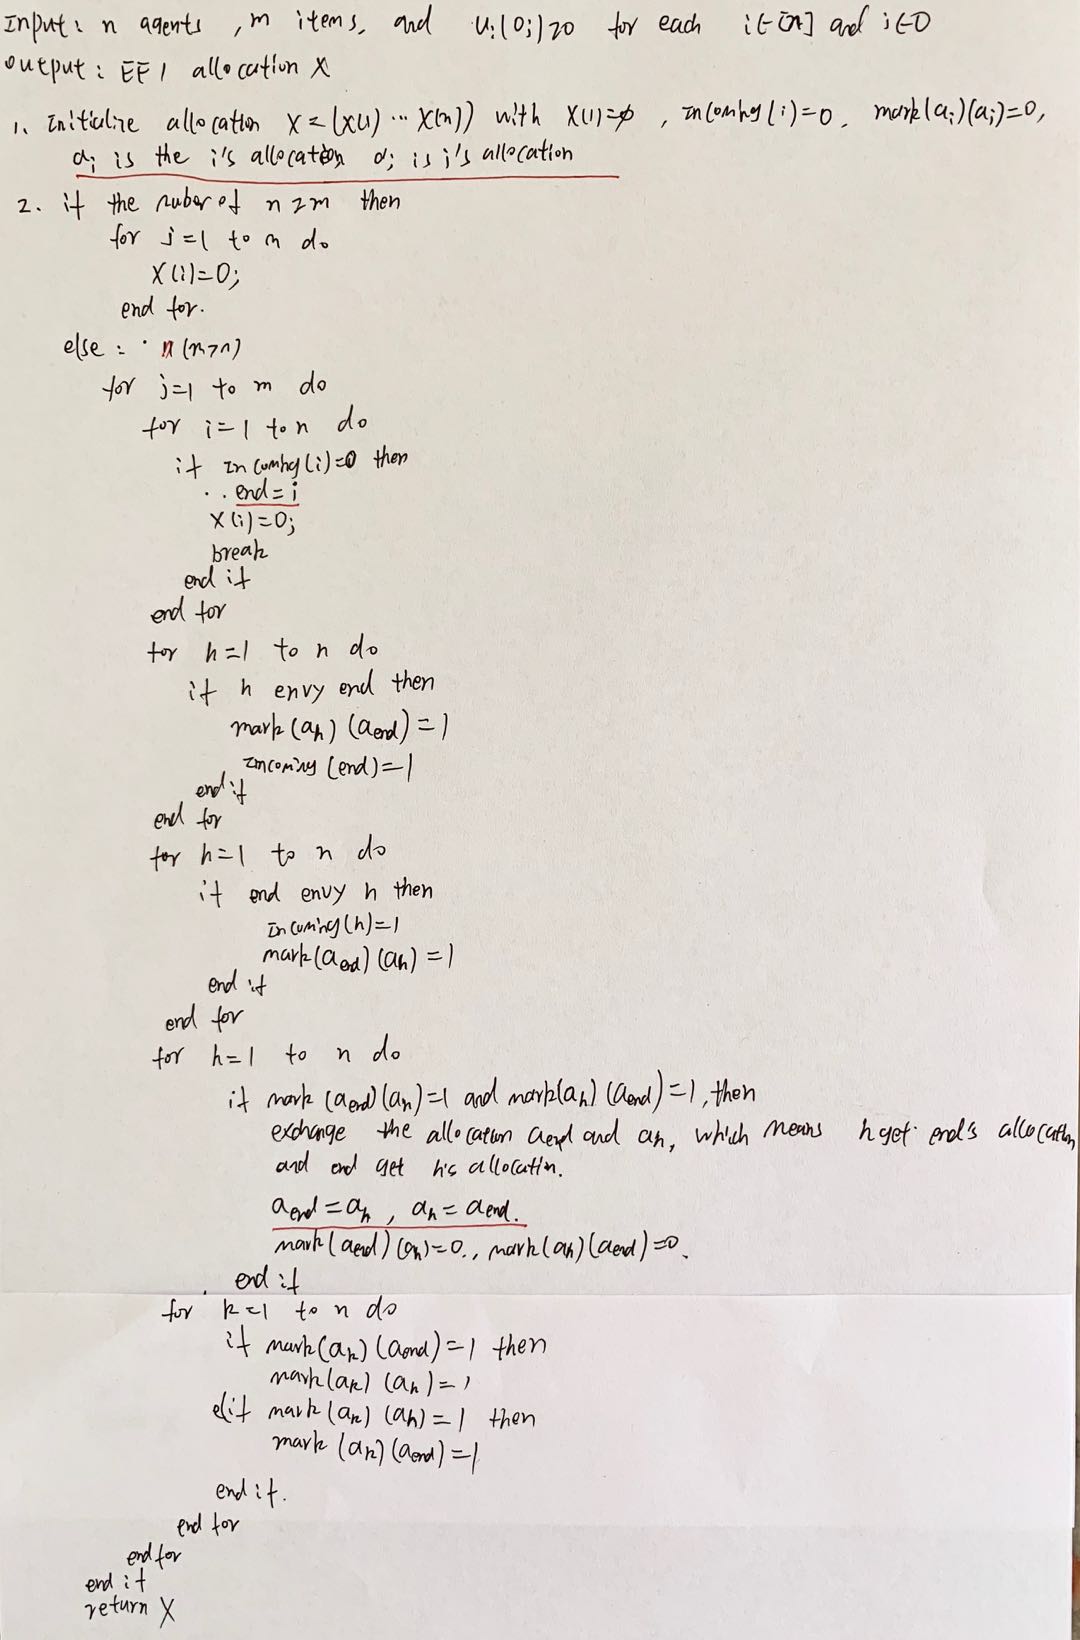 Input: n agents , m items, and ui(oj)≥0 for each i∈[n] and j∈O
output: EF1 allocation X
1. Initialize allocation X=(X(1)...X(n)) with X(1)=∅ , incoming(i)=0, mark(ai)(aj)=0,
ai is the i's allocation aj is j's allocation
2. if the nuber of n≥m then
for j=1 to n do
X(i)=Oj
end for.
else : (m>n)
for j=1 to m do
for i=1 to n do
if incoming(i)=0 then
end=i
X(i)=Oj
break
end if
end for
for h=1 to n do
if h envy end then
mark(ah)(aend)=1
incoming(end)=1
end if
end for
for h=1 to n do
if end envy h then
Incoming(h)=1
mark(aend)(ah)=1
end if
end for
for h=1 to n do
if mark(aend)(ah)=1 and mark(ah)(aend)=1, then
exchange the allocation aend and ah, which means h get end's allocation
and end get h's allocation.
aend=ah , ah=aend.
mark(aend)(ah)=0., mark(ah)(aend)=0.
end if
for k=1 to n do
if mark(ak)(aend)=1 then
mark(ak)(ah)=1
elif mark(ak)(ah)=1 then
mark(ak)(aend)=1
end if.
end for
end for
end if
return X